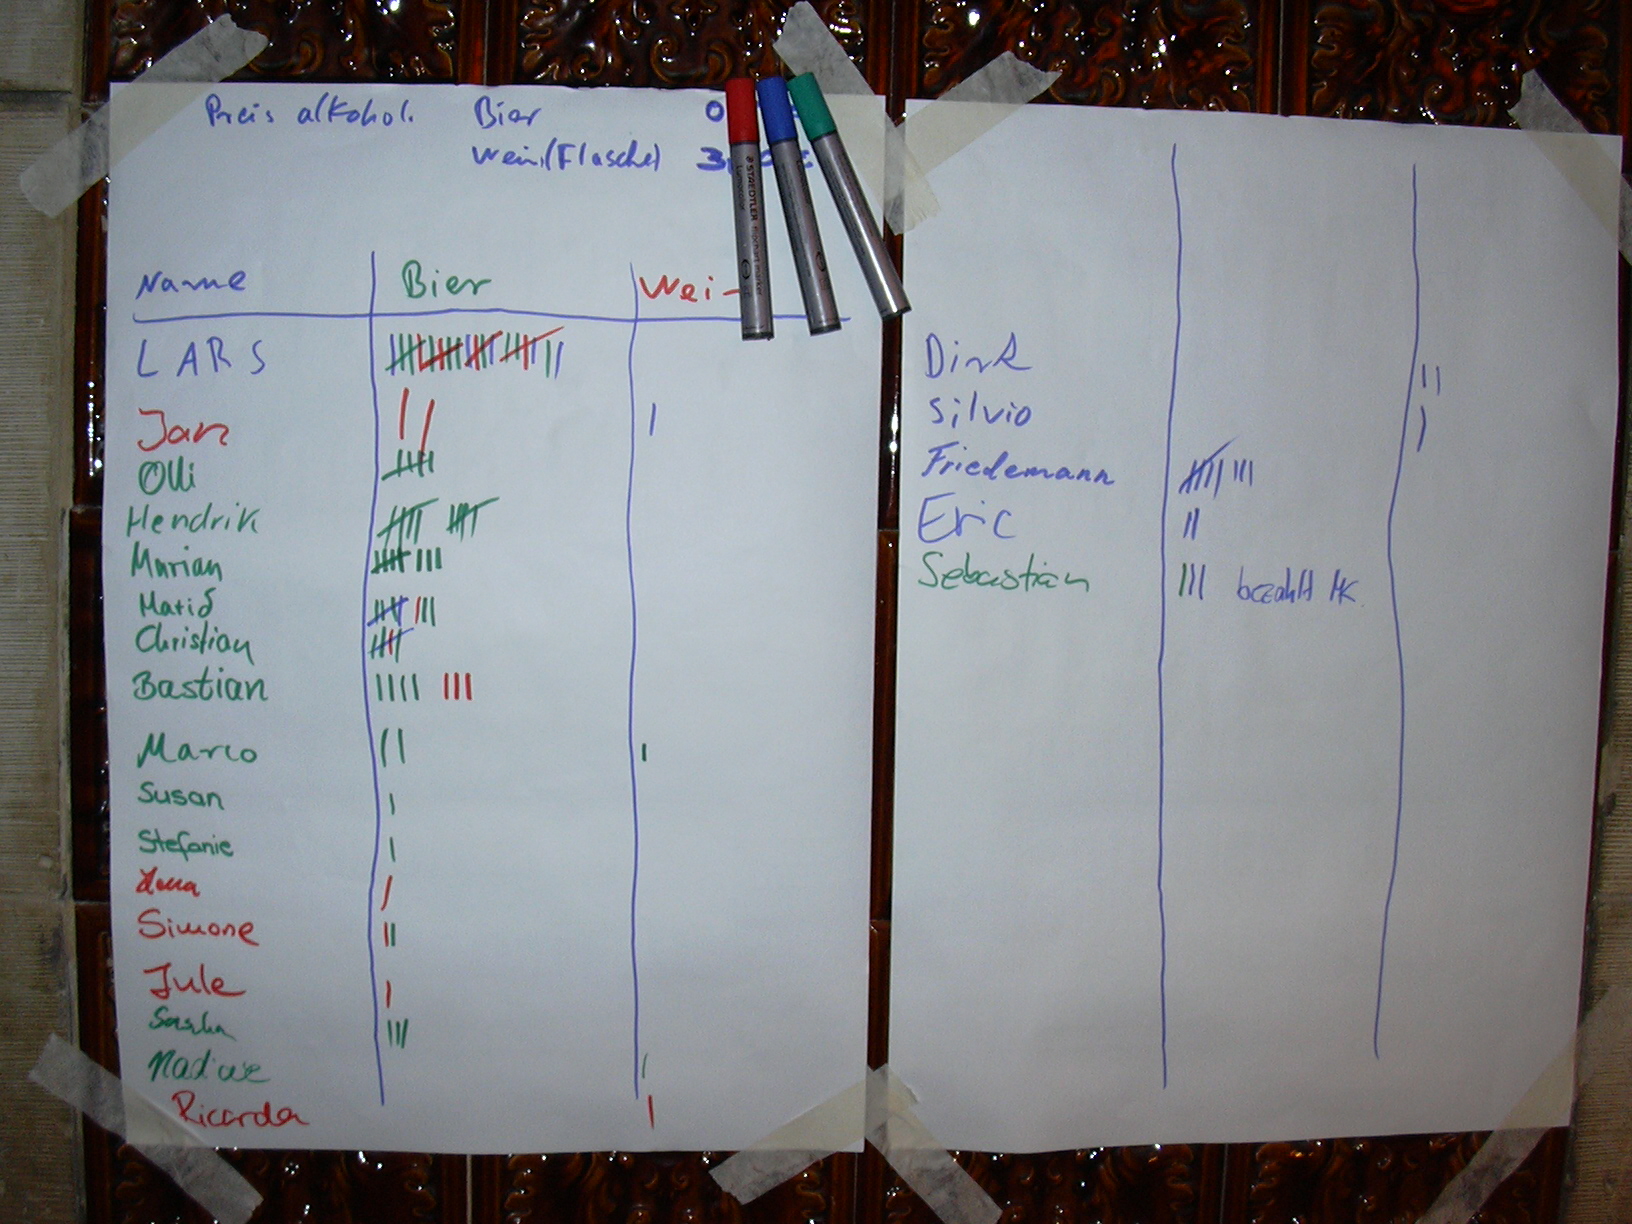 Preis alkohol. Bier 0
Wein (Flasche) 3,
Name Bier Wei
LARS
Jan
Olli
Hendrik
Marian
Christian
Bastian
Marco
Susan
Stefanie
Simone
Jule
Sasha
Nadine
Ricarda
STAEDTLER
Lumocolor flipchart marker
Dirk
Silvio
Friedemann
Eric
Sebastian bezahlt